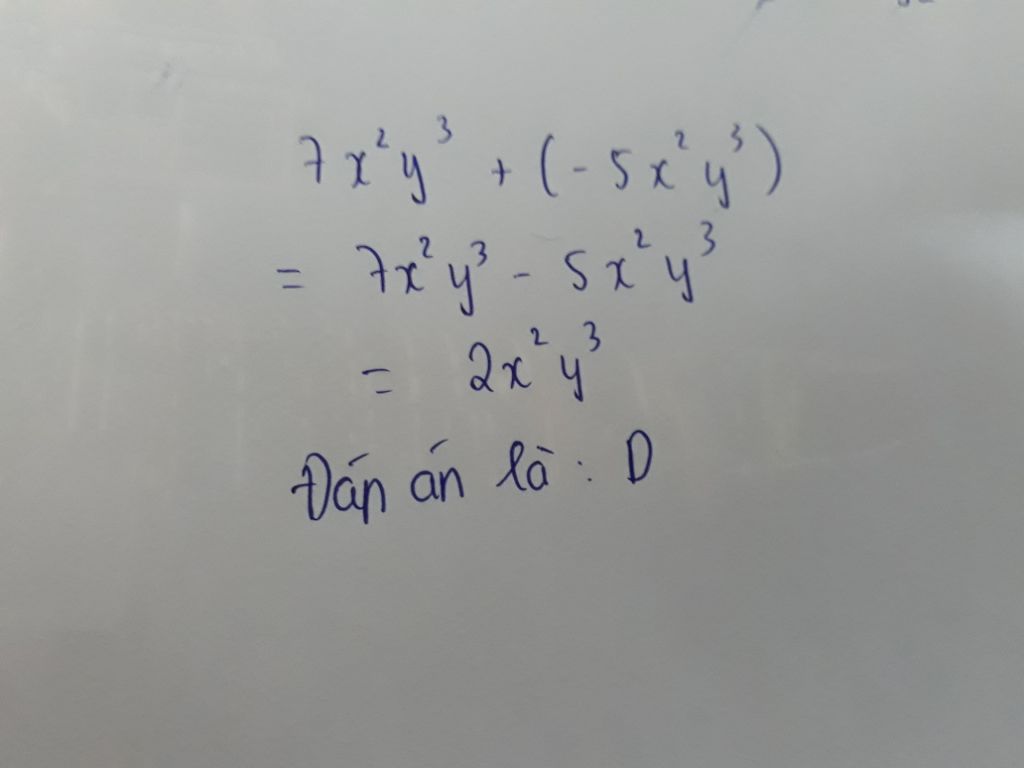 7x²y³ + (-5x²y³)
= 7x²y³ - 5x²y³
= 2x²y³
Đáp án là : D